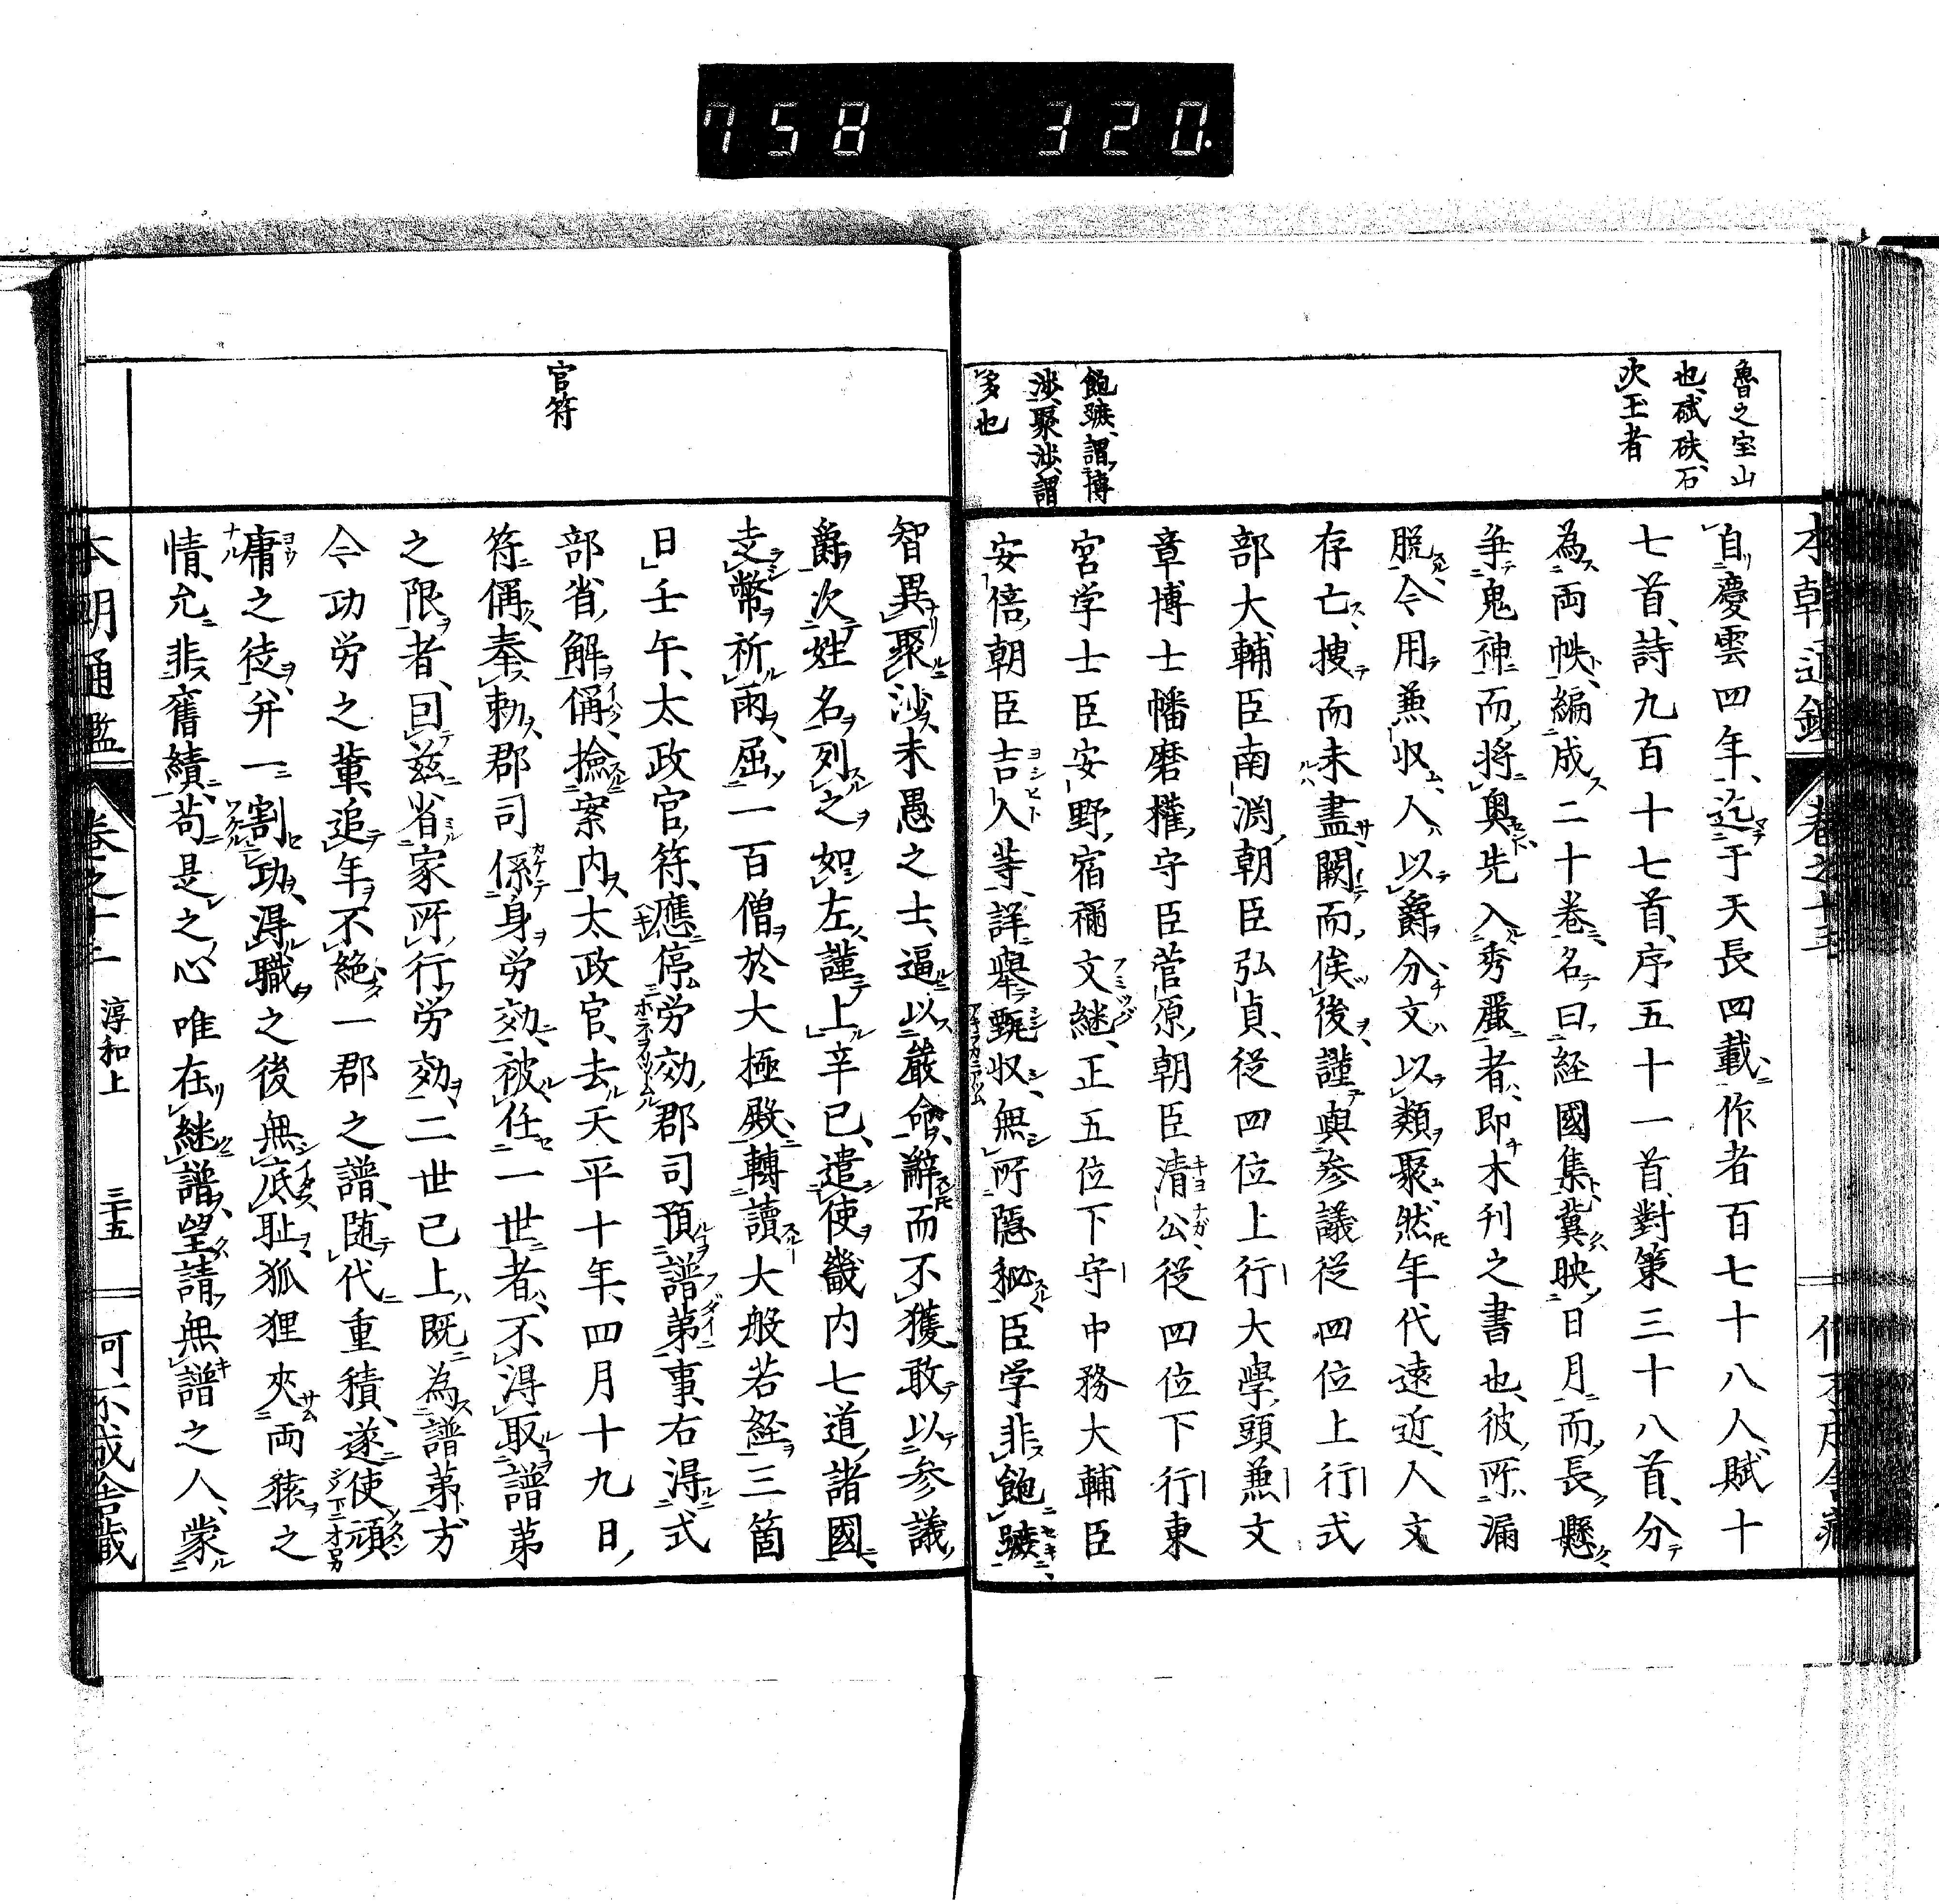 758 320.
魯之宝山
也、碔砆、石
次玉者
飽蹠、謂博
渉、聚沙、謂
多也
自慶雲四年、迄于天長四載、作者百七十八人、賦十
七首、詩九百十七首、序五十一首、對策三十八首、分
為両帙、編成二十巻、名曰経國集、冀映日月而、長懸
争鬼神而、将奥先入秀嚴者、即木刊之書也、彼所漏
脱、今用兼収、人以爵分文以類聚、然年代遠近、人文
存亡、捜而未盡、闕而、俟後、謹與参議従四位上行式
部大輔臣南淵朝臣弘貞、従四位上行大學頭兼文
章博士幡磨権守臣菅原朝臣清公、従四位下行東
宮学士臣安野宿禰文継、正五位下守中務大輔臣
安倍朝臣吉人等、詳舉甄収、無所隠秘、臣学非飽蹠、
智異聚沙、未愚之士、逼以嚴命、辞而不獲敢以参議、
爵次姓名列之如左、謹上、辛巳、遣使畿内七道諸國、
走幣祈雨、屈一百僧於大極殿、轉讀大般若経三箇
日、壬午、太政官符、應停労効郡司預譜第事、右得式
部省解偁、撿案内、太政官、去天平十年、四月十九日、
符偁、奉勅、郡司係身労効、被任一世者、不得取譜第
之限者、囙茲省家所行労効、二世已上、既為譜第、方
今功労之輩、追年不絶、一郡之譜、随代重積、遂使頑
庸之徒、并一割功、得職之後無底耻、狐狸夾両猿之
情、允非舊績、苟是之心唯在継譜、望請無譜之人、蒙
官符
本朝通鑑
巻之十三
淳和上
三十五